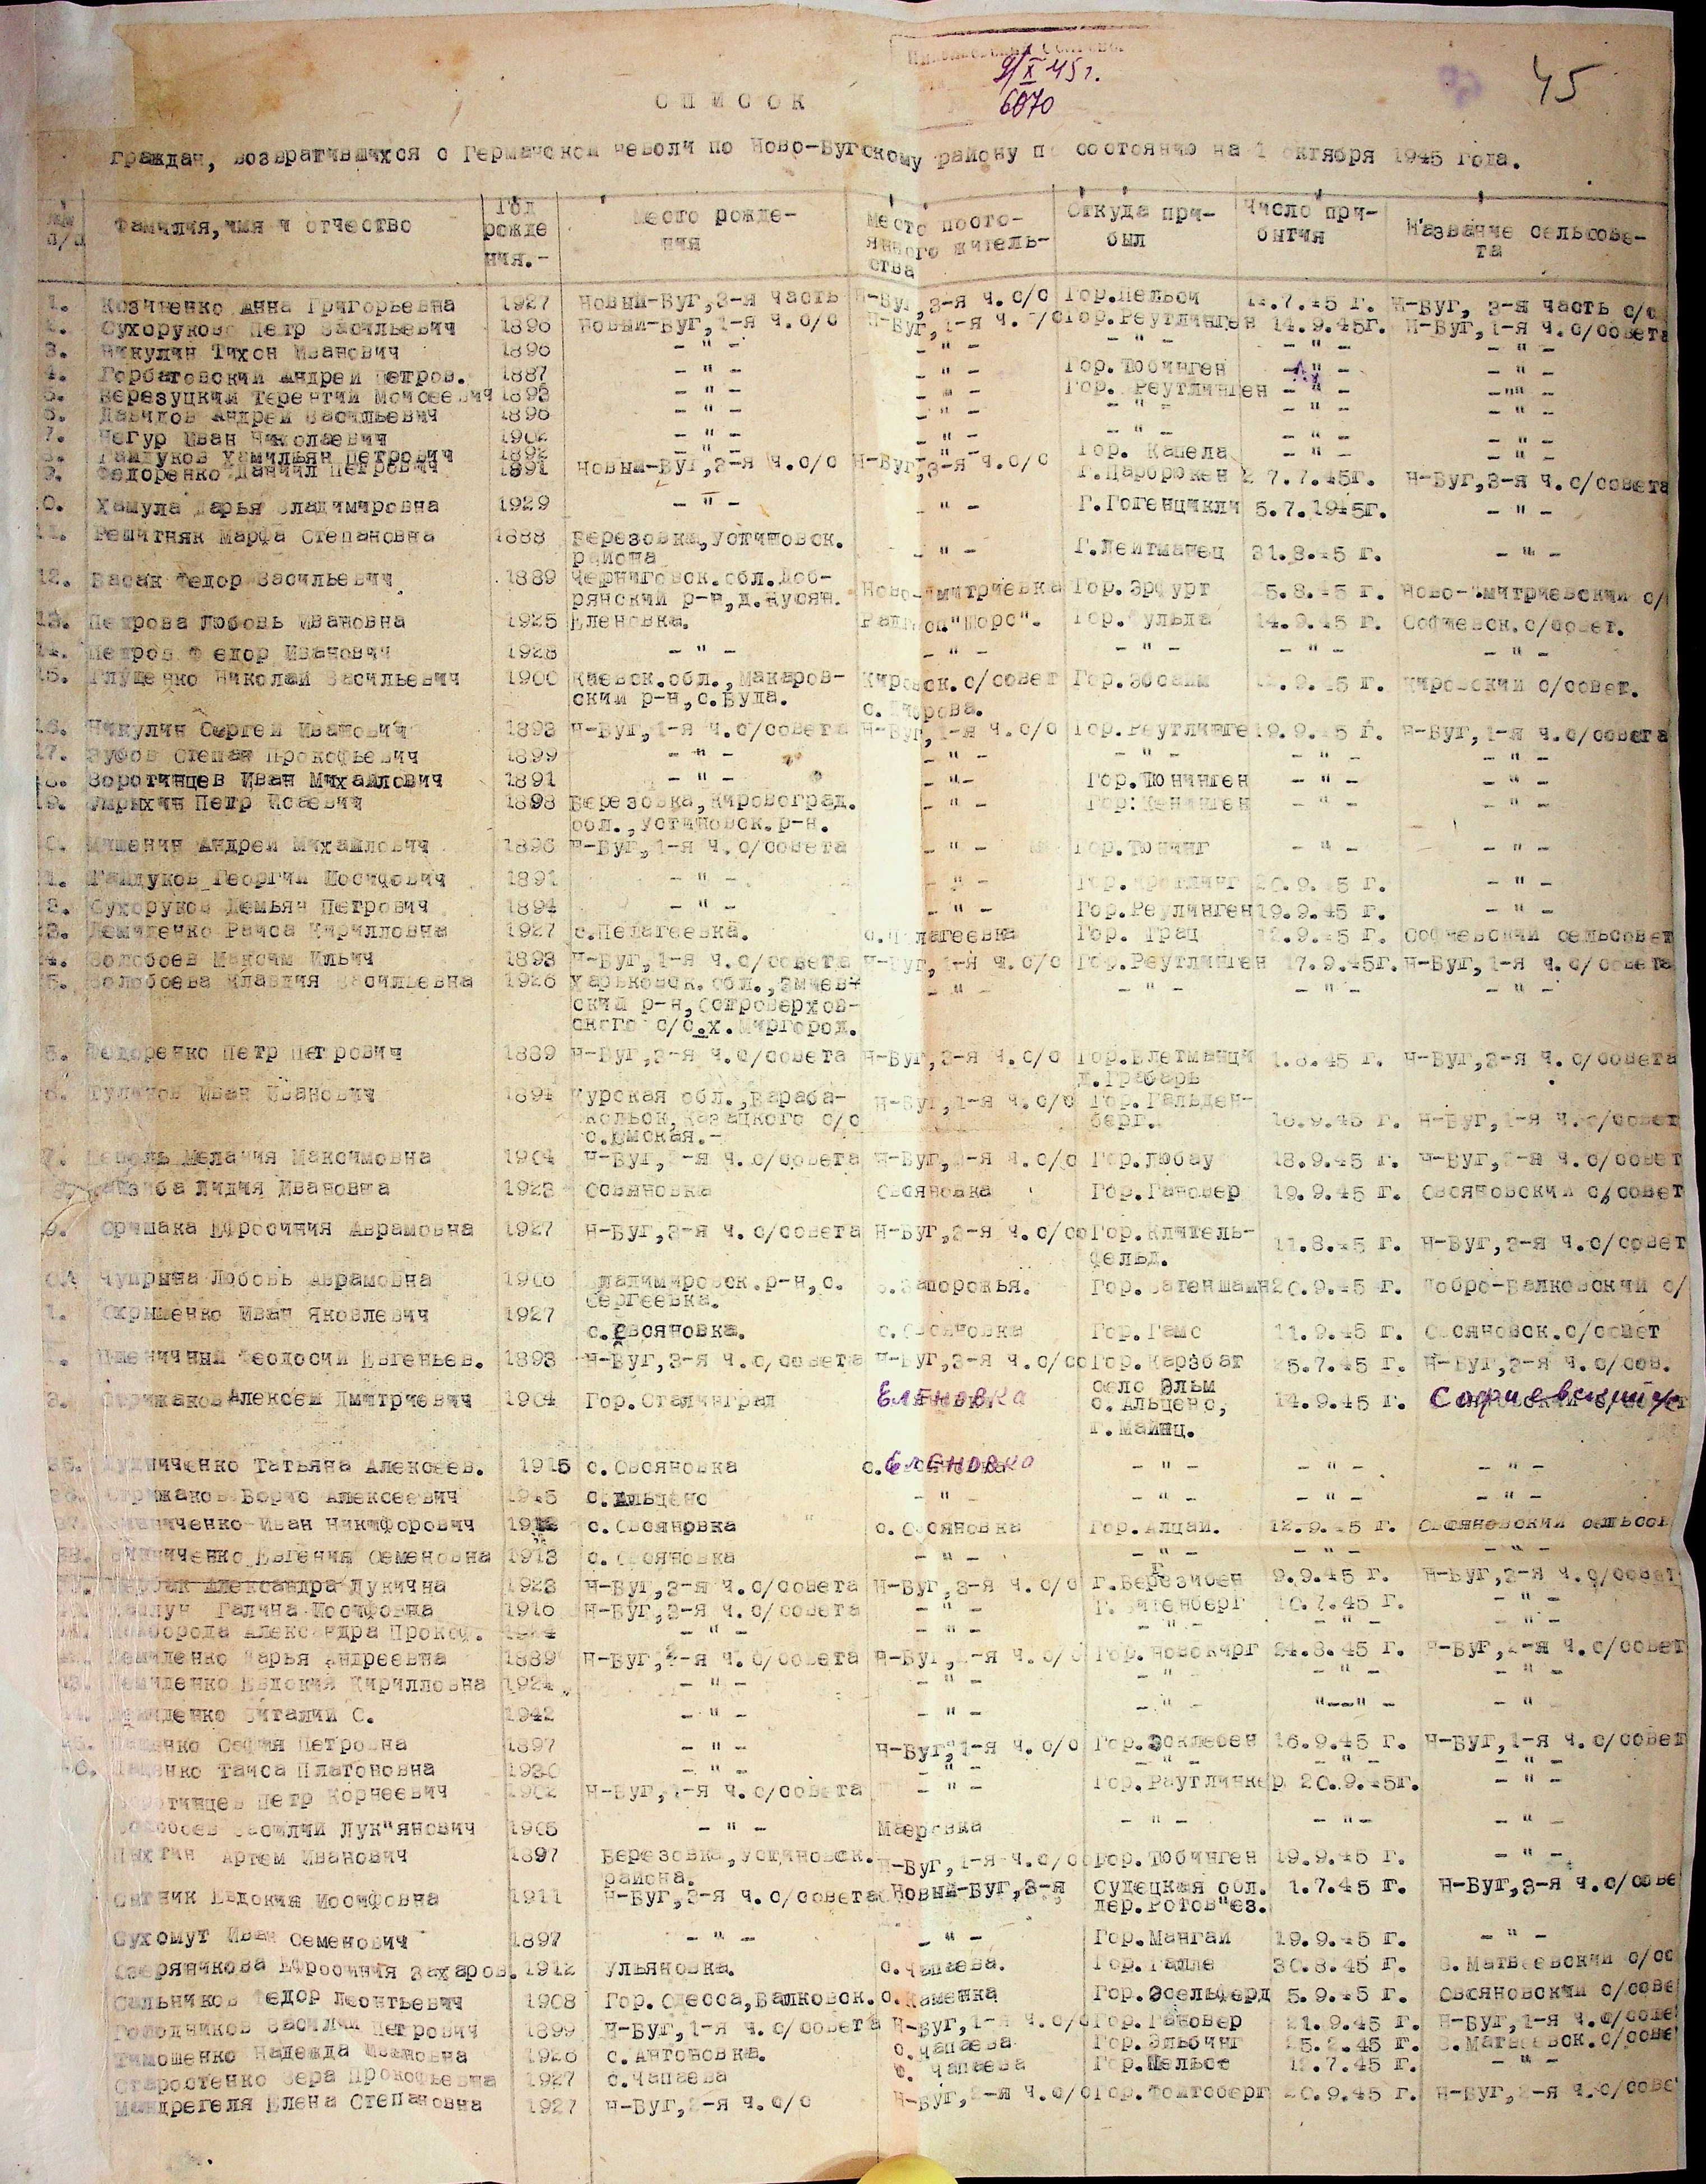 9/X 45 г.
6870
45
СПИСОК
граждан, возвратившихся с Германской неволи по Ново-Бугскому району по состоянию на 1 октября 1945 года.
п/п Фамилия, имя и отчество Год рожде ния.- Место рожде- ния Место посто- янного житель- ства Откуда при- был Число при- бытия Название сельсове- та
1. Анна Григорьевна 1927 Новый-Буг,3-я часть Н-Буг,3-я ч.с/с Гор.Пельси .7.45 г. Н-Буг, 3-я часть с/с
2. Сухоруков Петр Васильевич 1896 Новый-Буг,1-я ч.с/с Н-Буг,1-я ч. /с Гор.Реутлинген 14.9.45г. Н-Буг,1-я ч.с/совета
3. Никулин Тихон Иванович 1896 -"- -"- -"- -"- -"-
4. Горбатовский Андрей Петров. 1887 -"- -"- Гор.Тюбинген -"- -"-
5. Березуцкий Терентий Моисеевич 1893 -"- -"- Гор. Реутлинген -"- -""-
6. Давидов Андрей Васильевич 1896 -"- -"- -"- -"- -"-
7. Негур Иван Николаевич 1902 -"- -"- -"- -"- -"-
8. Петрович 1892 -"- -"- Гор. Капела -"- -"-
9. Федоренко Даниил Петрович 1891 Новый-Буг,3-я ч.с/с Н-Буг,3-я ч.с/с 7.7.45г. Н-Буг,3-я ч.с/совета
0. Хамула Дарья Владимировна 1929 -"- -"- Г.Гогенцикли 5.7.1945г. -"-
11. Решитняк Марфа Степановна 1888 Березовка,Устиновск. -"- Г.Лейтманец 31.8.45 г. -"-
района
12. Басак Федор Васильевич 1889 Черниговск.обл.Доб- Ново-Дмитриевка Гор.Эрфурт 5.8.45 г. Ново-Дмитриевский с/
рянский р-н,д.
13. Петрова Любовь Ивановна 1925 Еленовка. "Шорс"- Гор.Фульда 14.9.45 г. Софиевск.с/совет.
14. Петров Федор Иванович 1928 -"- -"- -"- -"- -"-
15. Глущенко Николай Васильевич 1900 Киевск.обл.,Макаров- Кировск.с/совет .9.45 г. Кировский с/совет.
ским р-н,с.Буда. с.Кирова.
16. Никулин Сергей Иванович 1893 Н-Буг,1-я ч.с/совета Н-Буг,1-я ч.с/с Гор.Реутлинге 19.9.45 г. Н-Буг,1-я ч.с/совета
17. Зубов Степан Прокофьевич 1899 -"- -"- -"- -"- -"-
18. Воротинцев Иван Михайлович 1891 -"- -"- Гор.Тюнинген -"- -"-
19. Петр Исаевич 1898 Березовка,Кировоград. -"- -"- -"-
обл.,Устиновск.р-н.
0. Мишенин Андрей Михайлович 1896 Н-Буг,1-я ч.с/совета -"- Гор.Тюнинг -"- -"-
1. Гайдуков Георгий Иосифович 1891 -"- -"- 20.9.45 г. -"-
2. Сухоруков Демьян Петрович 1894 -"- -"- Гор.Реулинген 19.9.45 г. -"-
23. Демиденко Раиса Кирилловна 1927 с.Пелагеевка. с.Пелагеевка Гор. Грац 12.9.45 г. Софиевский сельсовет
4. Волобоев Максим Ильич 1893 Н-Буг,1-я ч.с/совета Н-Буг,1-я ч.с/с Гор.Реутлинген 17.9.45г. Н-Буг,1-я ч.с/совета
5. Волобоева Клавдия Васильевна 1926 Харьковск.обл.,Змиев- -"- -"- -"- -"-
ский р-н,Островерхов-
ского с/с.х.Миргород.
5. Федоренко Петр Петрович 1889 Н-Буг,3-я ч.с/совета Н-Буг,3-я ч.с/с 1.8.45 г. Н-Буг,3-я ч.с/совета
д.Грабарь
6. Иван Иванович 1894 Курская обл., Н-Буг,1-я ч.с/с Гор.Гальден-
Казацкого с/с берг. 16.9.45 г. Н-Буг,1-я ч.с/совет
7. Мелания Максимовна 1904 Н-Буг, -я ч.с/совета Н-Буг, -я ч.с/с Гор.Любау 18.9.45 г. Н-Буг, -я ч.с/совет
Лидия Ивановна 1923 Овсяновка Овсяновка Гор.Гановер 19.9.45 г. Овсяновский с/совет
9. Оришака Ефросиния Аврамовна 1927 Н-Буг,3-я ч.с/совета Н-Буг,3-я ч.с/со Гор.Клитель- 11.8.45 г. Н-Буг,3-я ч.с/совет
фельд.
Чупрына Любовь Аврамовна 1906 Владимировск.р-н,с. Запорожья. 20.9.45 г. Добро-Валковский с/
Сергеевка.
1. Скрышенко Иван Яковлевич 1927 с.Овсяновка. с.Овсяновка Гор.Гамс 11.9.45 г. Овсяновск.с/совет
Пшеничный Феодосий Евгеньев. 1893 Н-Буг,3-я ч.с/совета Н-Буг,3-я ч.с/со Гор.Карзбат 5.7.45 г. Н-Буг,3-я ч.с/сов.
3. Стрижаков Алексей Дмитриевич 1904 Гор.Сталинград Еленовка село Эльм 14.9.45 г. Софиевский
с.Альценс,
г.Майнц.
35. Татьяна Алексеев. 1915 с.Овсяновка Еленовка -"- -"- -"-
Стрижаков Борис Алексеевич 1945 с.Альценс -"- -"- -"- -"-
Иван Никифорович с.Овсяновка с.Овсяновка Гор.Алцай. 12.9.45 г. Овсяновский сельсов
Евгения Семеновна 1913 с.Овсяновка -"- -"- -"- -"-
Александра Лукична 1923 Н-Буг,3-я ч.с/совета Н-Буг,3-я ч.с/с 9.9.45 г. Н-Буг,3-я ч.с/совет
Галина Иосифовна 1916 Н-Буг,3-я ч.с/совета -"- 10.7.45 г. -"-
Александра Прокоф. -"- -"- -"- -"- -"-
Демиденко Дарья Андреевна 1889 Н-Буг,2-я ч.с/совета Н-Буг, -я ч.с/с 24.8.45 г. Н-Буг, -я ч.с/совет
Демиденко Евдокия Кирилловна 1924 -"- -"- -"- -"- -"-
Демиденко Виталий С. 1942 -"- -"- -"- "--"- -"
София Петровна 1897 -"- Н-Буг,1-я ч.с/с Гор.Эсклебен 16.9.45 г. Н-Буг,1-я ч.с/совет
Таиса Платоновна 1930 -"- -"- -"- -"- -"-
Воротинцев Петр Корнеевич 1902 Н-Буг,1-я ч.с/совета -"- Гор.Раутлинкер 20.9.45г. -"-
Волобоев Василий Лук"янович 1905 -"- Маеровка -"- -"- -"
Артем Иванович 1897 Березовка,Устиновск. Н-Буг,1-я ч.с/с Гор.Тюбинген 19.9.45 г. -"-
района.
Сытник Евдокия Иосифовна 1911 Н-Буг,3-я ч.с/совета Новый-Буг,3-я Судецкая обл. 1.7.45 г. Н-Буг,3-я ч.с/сове
дер.Ротов"ез.
Сухомут Иван Семенович 1897 -"- -"- Гор.Мангай 19.9.45 г. -"-
Озерянникова Ефросиния Захаров. 1912 Ульяновка. с.Чапаева. Гор.Галле 30.8.45 г. В.Матвеевский с/со
Сыльников Федор Леонтьевич 1908 Гор.Одесса,Валковск. с.Каменка Гор.Эсельферд 5.9.45 г. Овсяновский с/сове
Голодников Василий Петрович 1899 Н-Буг,1-я ч.с/совета Н-Буг,1-я ч.с/с Гор.Гановер 21.9.45 г. Н-Буг,1-я ч.с/сове
Тимошенко Надежда Ивановна 1926 с.Антоновка. с.Чапаева Гор.Эльбинг 25.2.45 г. В.Матвеевск.с/сове
Старостенко Вера Прокофьевна 1927 с.Чапаева с. Чапаева Гор.Шельсе 12.7.45 г. -"-
Мандрегеля Елена Степановна 1927 Н-Буг,2-я ч.с/с Н-Буг,2-я ч.с/с 20.9.45 г. Н-Буг,2-я ч.с/сове